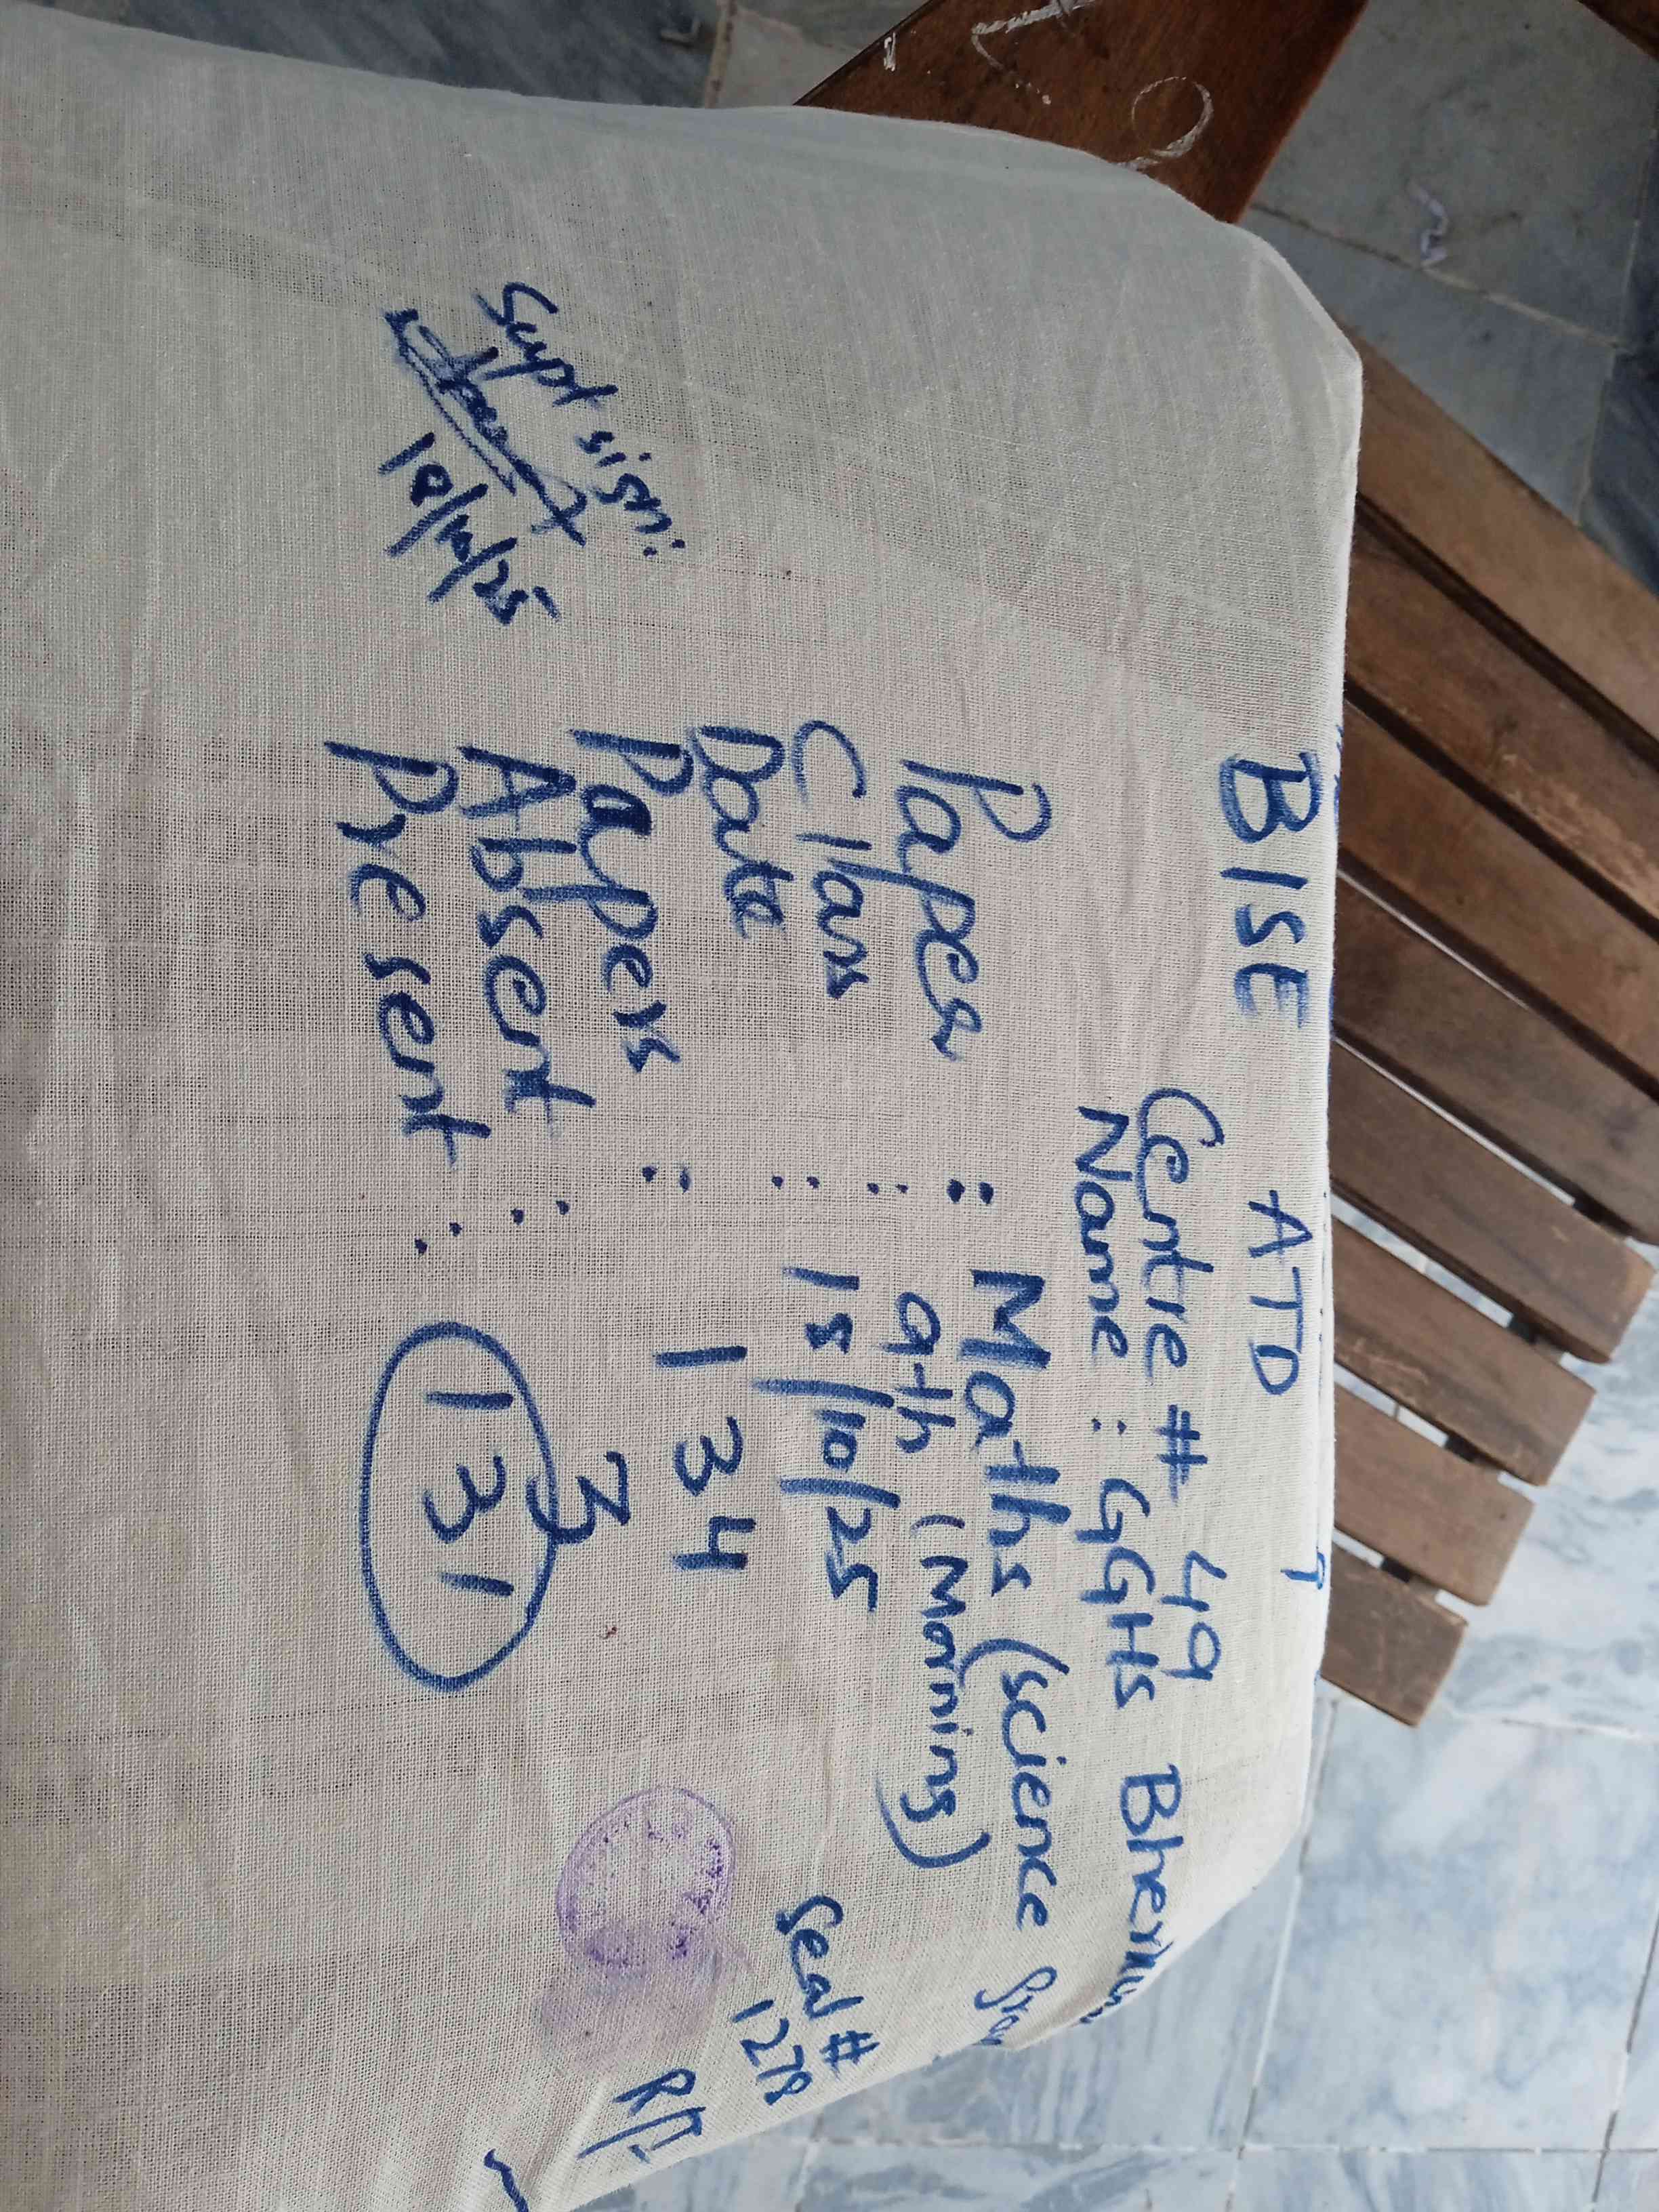 BISE ATD
Centre # 49
Name : GGHS
Paper : Maths (science
Class : 9th (Morning)
Date : 15/10/25
Papers : 134
Absent : 3
Present : 131
Supt sign:
Seal #
1278